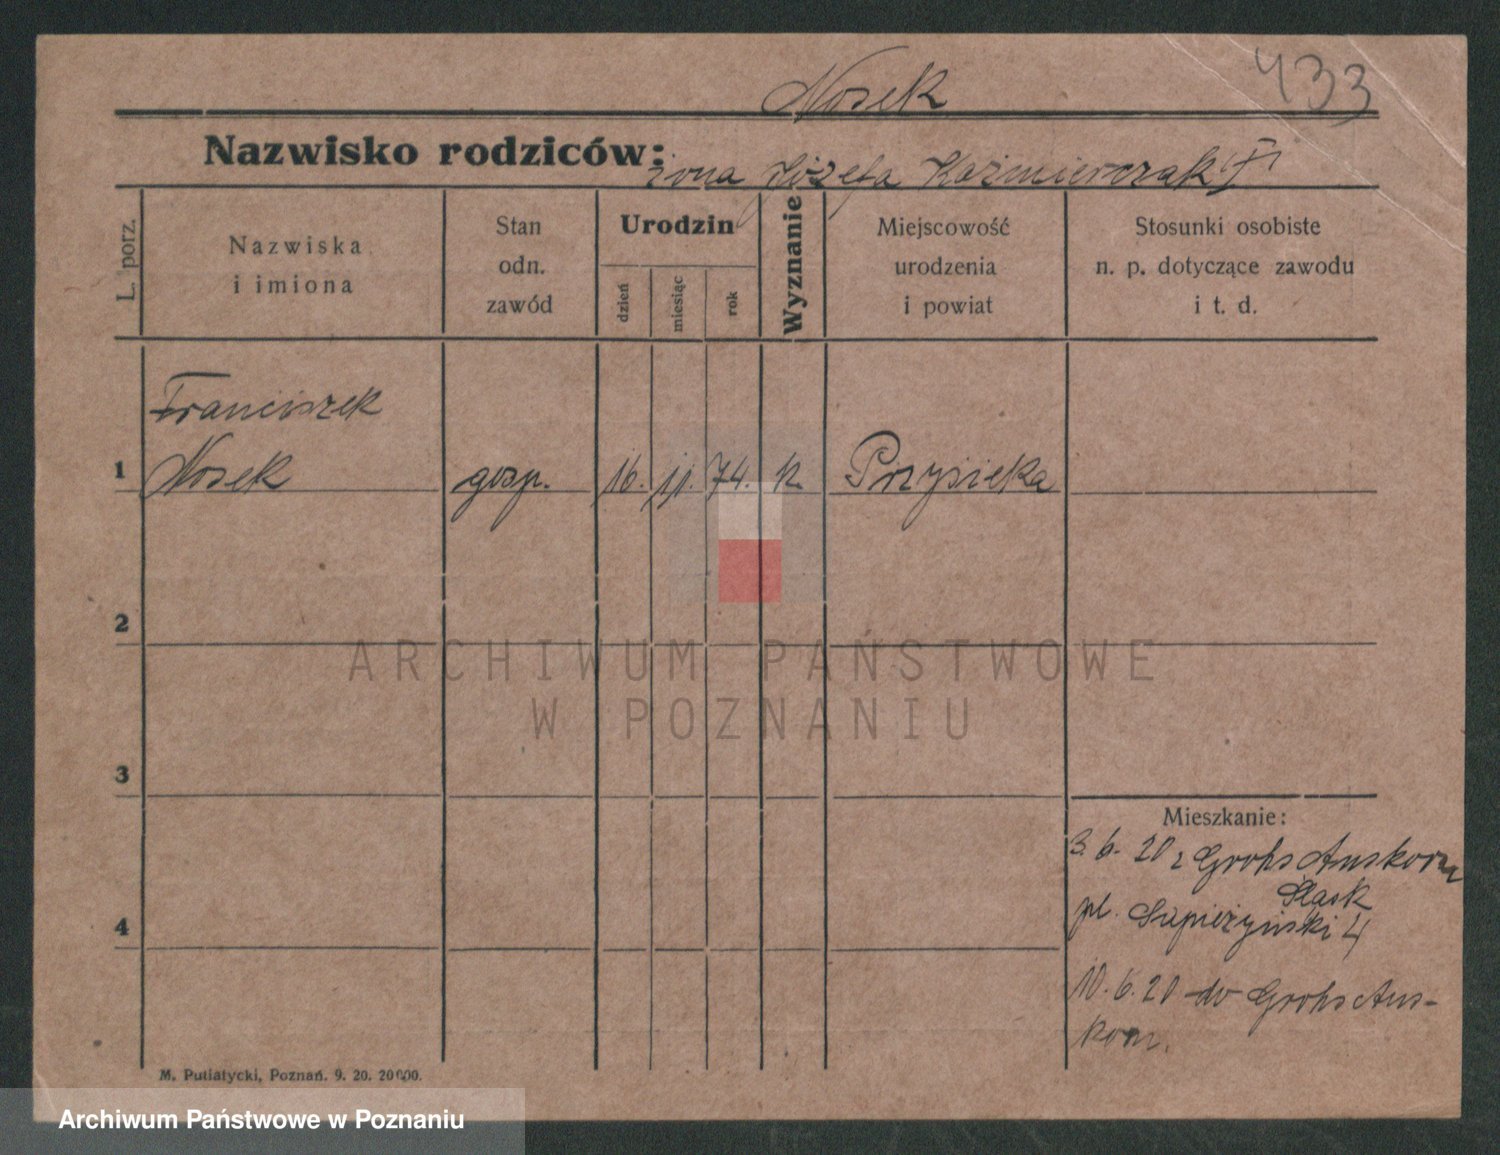 433
Nosek
Nazwisko rodziców:
żona Józefa Kaźmierczak
L. porz.
Nazwiska
i imiona
Stan
odn.
zawód
Urodzin
dzień
miesiąc
rok
Wyznanie
Miejscowość
urodzenia
i powiat
Stosunki osobiste
n. p. dotyczące zawodu
i t. d.
Franciszek
1 Nosek gosp. 16. 11. 74. k. Przysieka
2
ARCHIWUM PAŃSTWOWE
W POZNANIU
3
Mieszkanie:
3. 6. 20 z Grohs
Śląsk
pl. Sapieżyński 4
4
10. 6. 20 do Grohs
M. Putiatycki, Poznań. 9. 20. 20000.
Archiwum Państwowe w Poznaniu